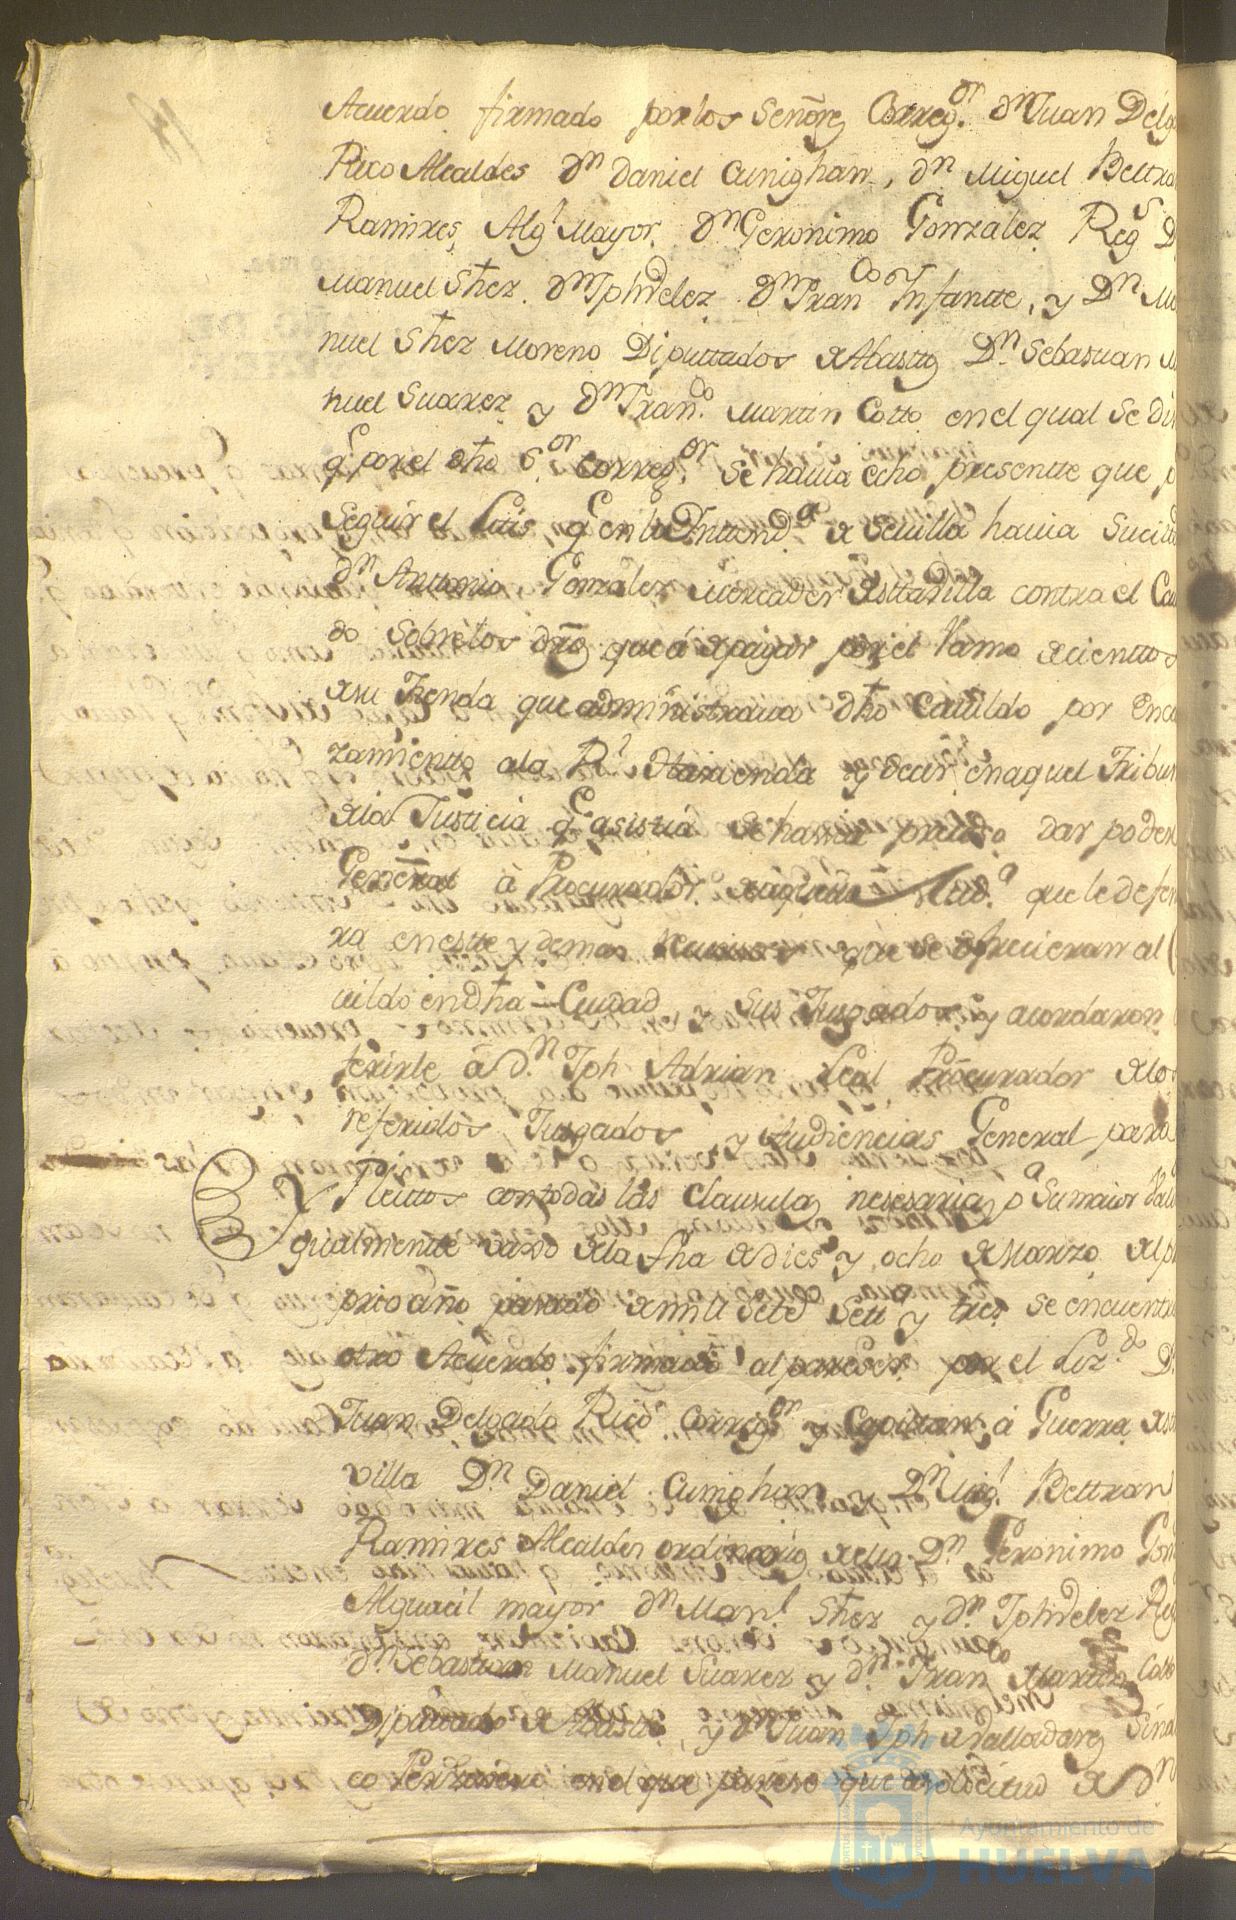 Acuerdo firmado por los Señores Correg.or Dn Juan Delg
Rico Alcaldes Dn Daniel Cunighan, Dn Miguel Beltra
Ramires, Algl Mayor, Dn Geronimo Gonzalez Regs D
Manuel Shez. Dn Jph Velez Dn Franco Infantte, y Dn Ma
nuel Shez Moreno Diputtados de Abastos Dn Sebastian Ma
nuel Suarez y Dn Franco Martin Cotto en el qual se di
q por el dho Sor Corregor se hauia echo presentte que p
seguir el Litis q en la Inttenda de Seuilla hauia sucita
Dn Anttonio Gonzalez Mercader de estta Villa contra el Ca
do sobre los dros que á de pagar por el Ramo de vienttos
de su Tienda que administraua dho Cauildo por Enca
zamientto a la Rl Hacienda y decir en aquel Tribun
de la Justicia q asistia se hauia preciso dar poder
General á Procurador de aquella Ciuda que le defen
ra en estte y demas que se ofrecieran al C
uildo en dha Ciudad y sus Jusgados y acordaron
ferirle á Dn Jph Adrian Leal Procurador de los
referidos Jusgados, y Audiencias General para
Pleittos con todas las clausulas nesesarias pa su maior Vali
Ygualmentte vajo de la fha de dies y ocho de Marzo del p
prio año pasado de mill Setes Sett y tres se encuentra
otro Acuerdo firmado al pareser por el Lizdo D
Juan Delgado Rico Corregor y Capittan á Guerra de es
villa Dn Daniel Cunighan y Dn Migl Beltran
Ramires Alcaldes ordinarios de ella Dn Geronimo Gon
Alguacil mayor Dn Manl Shez y Dn Jph Velez Re
Dn Sebastian Manuel Suarez y Dn Franco Martin Cotto
Diputtados de Abastos, y Dn Juan Jph de Valladares Sindi
co Personero en el que parese que a solicitud de Dn
Ayuntamiento de
HUELVA